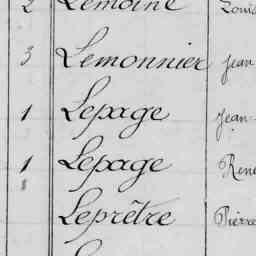 2 Lemoine Louis
3 Lemonnier Jean
1 Lepage Jean
1 Lepage René
1 Leprêtre Pierre